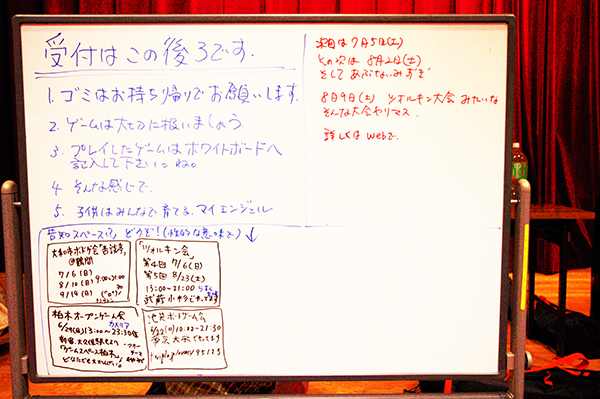 受付はこの後ろです.
1. ゴミはお持ち帰りでお願いします.
2. ゲームは大切に扱いましょう.
3. プレイしたゲームはホワイトボードへ
記入して下さい。ね。
4 そんな感じで.
5. 子供はみんなで育てる. マイエンジェル
告知スペース どうぞ!(性的な意味で)↓
大和市ボドゲ会
@鶴間
7/6(日) 9:00~21:00
8/10(日)
9/14(日)
「ツォルキン会」
第4回 7/6(日)
第5回 8/23(土)
13:00~21:00
武蔵小やってます
柏木オープンゲーム会
6/29(日)13:00~23:30位
「ゲームスペース柏木」
どなたでも
池袋ボードゲーム会
6/22(日)10:12-21:50
東京 やってます
次回は7月5日(土)
その次は 8月2日(土)
そして あぶないみずぎ
8月9日(土) ツォルキン大会 みたいな
そんな大会やりマス.
詳しくは Webで.